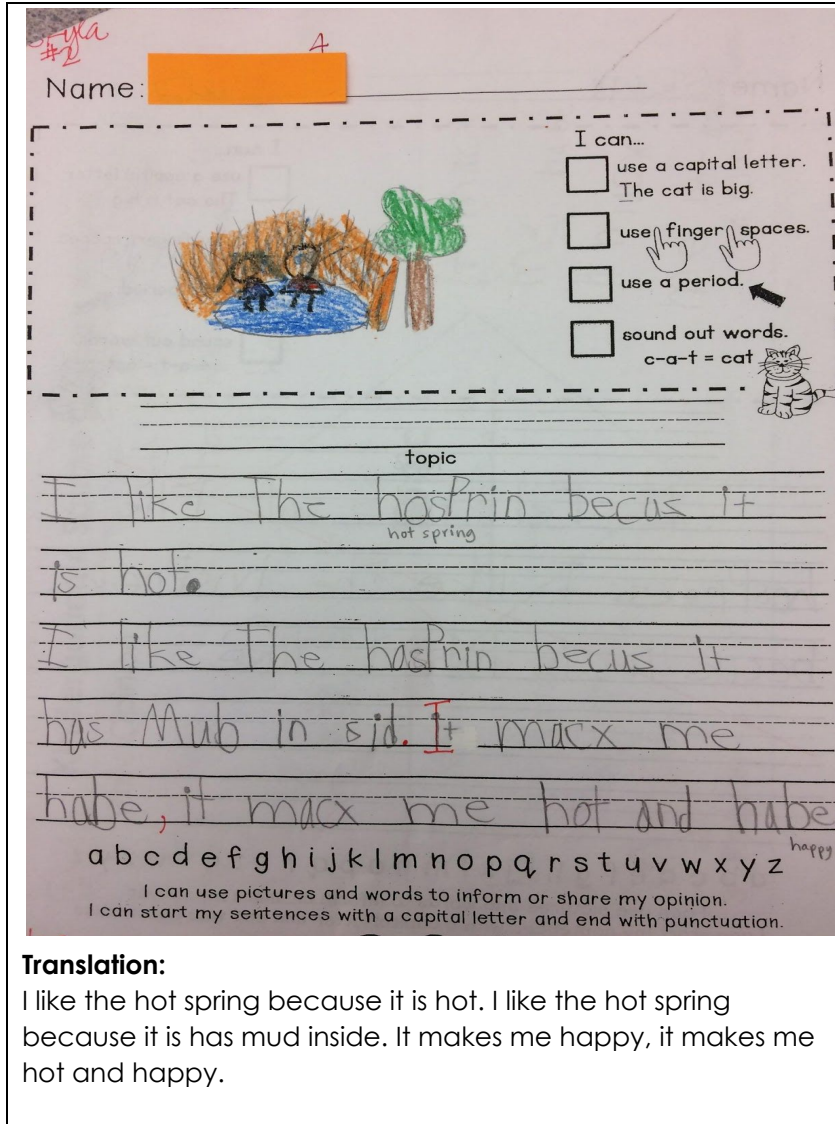 #2
4
Name:
I can...
use a capital letter.
The cat is big.
use finger spaces.
use a period.
sound out words.
c-a-t = cat
topic
I like The hosPrin becus it
hot spring
is hot.
I like The hosPrin becus it
has Mub in sid. It macx me
habe, it macx me hot and habe
happy
a b c d e f g h i j k l m n o p q r s t u v w x y z
I can use pictures and words to inform or share my opinion.
I can start my sentences with a capital letter and end with punctuation.
Translation:
I like the hot spring because it is hot. I like the hot spring
because it is has mud inside. It makes me happy, it makes me
hot and happy.